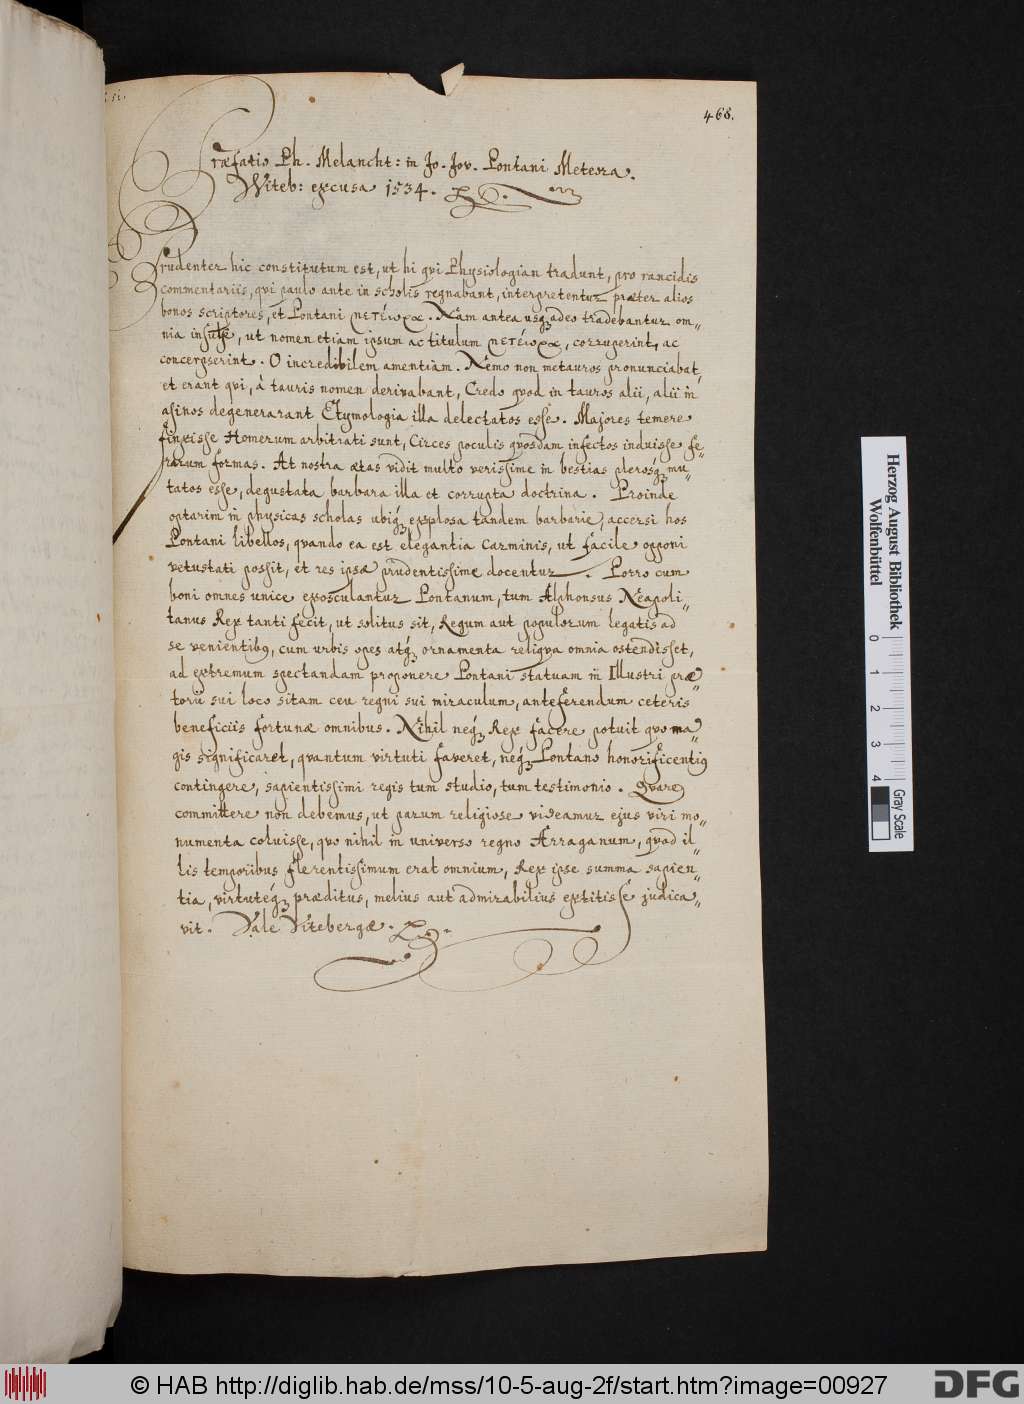 468.
Præfatio Ph. Melancht: in Jo. Jov. Pontani Meteora.
Witeb: excusa 1534.
Prudenter hic constitutum est, ut hi qvi Physiologian tradunt, pro rancidis
commentariis, qvi paulo ante in scholis regnabant, interpretentur præter alios
bonos scriptores, et Pontani μετέωρα. Nam antea usq; adeo tradebantur om„
nia insulse, ut nomen etiam ipsum ac titulum μετέωρα, corruperint, ac
O incredibilem amentiam. Nemo non metauros pronunciabat,
et erant qvi, à tauris nomen derivabant, Credo qvod in tauros alii, alii in
asinos degenerarant Etymologia illa delectatos esse. Majores temere
finxisse Homerum arbitrati sunt, Circes poculis qvosdam infectos induisse fe„
rarum formas. At nostra ætas vidit multo verissime in bestias plerosq; mu„
tatos esse, degustata barbara illa et corrupta doctrina. Proinde
optarim in physicas scholas ubiq; explosa tandem barbarie, accersi hos
Pontani libellos, qvando ea est elegantia carminis, ut facile opponi
vetustati possit, et res ipsæ prudentissime docentur. Porro cum
boni omnes unice exosculantur Pontanum, tum Alphonsus Neapoli„
tanus Rex tanti fecit, ut solitus sit, Regum aut populorum legatis ad
se venientibus, cum urbis opes atq; ornamenta reliqva omnia ostendisset,
ad extremum spectandam proponere Pontani statuam in Illustri præ„
torii sui loco sitam ceu regni sui miraculum, anteferendum ceteris
beneficiis fortunæ omnibus. Nihil neq; Rex facere potuit qvo ma„
gis significaret, qvantum virtuti faveret, neq; Pontano honorificentius
contingere, sapientissimi regis tum studio, tum testimonio. Qvare
committere non debemus, ut parum religiose videamur ejus viri mo„
numenta coluisse, qvo nihil in universo regno Arraganum, qvod il„
lis temporibus florentissimum erat omnium, Rex ipse summa sapien„
tia, virtuteq; præditus, melius aut admirabilius extitisse judica„
vit. Vale Vitebergæ.
Herzog August Bibliothek
Wolfenbüttel
0 1 2 3 4
Gray Scale
© HAB http://diglib.hab.de/mss/10-5-aug-2f/start.htm?image=00927
DFG